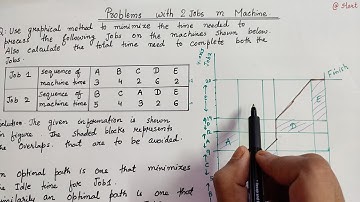 Problems with 2 Jobs m Machine
@ Start
Q: Use graphical method to minimize the time needed to
process the following Jobs on the machines shown below.
Also calculate the total time need to complete both the
Jobs.
Job 1 sequence of A B C D E
machine time 3 4 2 6 2
Job 2 sequence of B C A D E
machine time 5 4 3 2 6
Solution: The given information is shown
in figure. The shaded blocks represents
the overlaps. that are to be avoided.
An Optimal path is one that minimizes
the Idle time for Job 1.
Similarly an Optimal path is one that
Finish
E
D
A
20